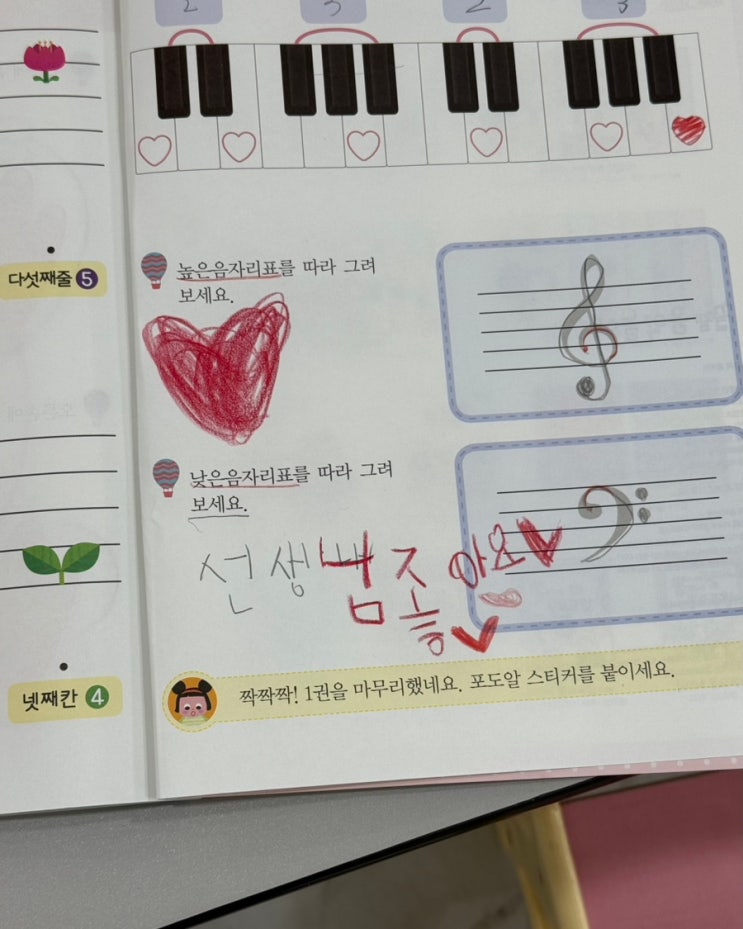 2 3 2 3
다섯째줄 5
높은음자리표를 따라 그려
보세요.
낮은음자리표를 따라 그려
보세요.
선생님 좋아요
넷째칸 4
짝짝짝! 1권을 마무리했네요. 포도알 스티커를 붙이세요.